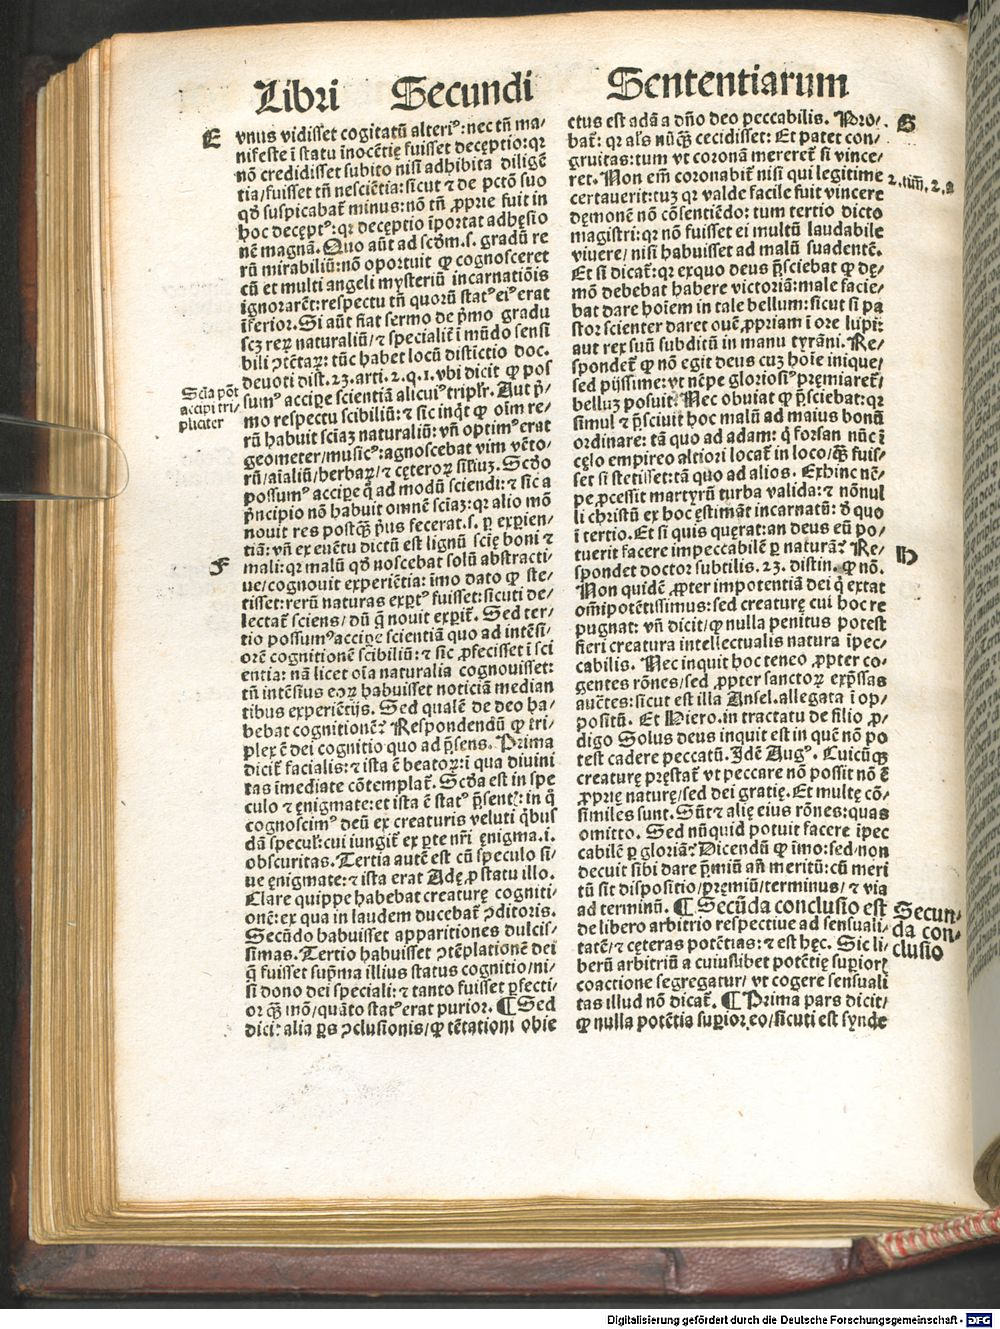 Libri Secundi Sententiarum
E
vnus vidisset cogitatũ alteriꝰ: nec tñ ma-
nifeste ĩ statu ĩnocẽtię fuisset decęptio: qꝛ
nõ credidisset subito nisi adhibita diligẽ
tia/ fuisset tñ nesciẽtia: sicut ⁊ de pctõ suo
qđ suspicabať minus: nõ tñ ꝓprie fuit in
hoc decęptꝰ: qꝛ deceptio ĩportat adhęsio
nẽ magnã. Quo aũt ad scđm .s. gradũ re
rũ mirabiliũ: nõ oportuit ꝙ cognosceret
cũ et multi angeli mysteriũ incarnatiõis
ignorarẽt: respectu tñ quorũ statꝰ eiꝰ erat
inferior. Si aũt fiat sermo de p̃mo gradu
scꝫ reꝝ naturaliũ/ ⁊ specialiẽ ĩ mũdo sensi
bili ↄtẽtaꝝ: tũc habet locũ distinctio doc.
deuoti dist. 23. arti. 2. q. 1. vbi dicit ꝙ pos
sumꝰ accipe scientiã alicuiꝰ tripľr. Aut p̃-
mo respectu scibiliũ: ⁊ sic inqt ꝙ oĩm re-
rũ habuit sciaꝫ naturaliũ: vñ optimꝰ erat
geometer/ musicꝰ: agnoscebat vim vẽto-
rũ/ aĩaliũ/ herbaꝝ/ ⁊ cęteroꝝ siliũ. Scđo
possumꝰ accipe q̃ ad modũ sciendi: ⁊ sic a
p̃ncipio nõ habuit omnẽ sciaꝫ: qꝛ alio mõ
nouit res postq̃ꝫ p̃us fecerat .s. ꝑ exꝑien-
tiã: vñ ex euẽtu dictũ est lignũ scię boni ⁊
F
mali: qꝛ malũ qđ noscebat solũ abstracti-
ue/ cognouit experiẽtia: imo dato ꝙ ste-
tisset: rerũ naturas exꝑtꝰ fuisset: sicuti de-
lectať sciens/ dũ q̃ nouit exꝑiť. Sed ter-
tio possumꝰ accipe scientiã quo ad intẽsi-
orẽ cognitionẽ scibiliũ: ⁊ sic ꝓfecisset ĩ sci
entia: nã licet oĩa naturalia cognouisset:
tñ intẽsius eoꝝ habuisset noticiã median
tibus experiẽtijs. Sed qualẽ de deo ha-
bebat cognitionẽ? Respondendũ ꝙ tri-
plex ẽ dei cognitio quo ad p̃sens. Prima
diciť facialis: ⁊ ista ẽ beatoꝝ: ĩ qua diuini
tas ĩmediate cõtemplať. Scđa est in spe
culo ⁊ ęnigmate: et ista ẽ statꝰ p̃sentꝭ: in q̃
cognoscimꝰ deũ ex creaturis veluti q̇bus
dã speculꝭ: cui iungiť ex ꝑte nr̃i ęnigma .i.
obscuritas. Tertia autẽ est cũ speculo si-
ue ęnigmate: ⁊ ista erat Adę ꝓ statu illo.
Clare quippe habebat creaturę cogniti-
onẽ: ex qua in laudem ducebať ↄditoris.
Secũdo habuisset apparitiones dulcis-
simas. Tertio habuisset ↄtẽplationẽ dei
q̃ fuisset sup̃ma illius status cognitio/ ni-
si dono dei speciali: ⁊ tanto fuisset ꝑfecti-
or q̃ꝫ mõ/ quãto statꝰ erat purior. ¶ Sed
dicį: alia ꝑs ↄclusionis/ ꝙ tẽtationi obie
Scĩa põt
accipi tri/
pliciter
ctus est adã a dño deo peccabilis. Pro-
G
bať: qꝛ aľs nũq̃ꝫ cecidisset: Et patet con-
gruitas: tum vt coronã mereret̃ si vince/
ret. Non em̃ coronabiť nisi qui legitime
2. tim̃. 2. a
certauerit: tuꝫ qꝛ valde facile fuit vincere
dęmonẽ nõ cõsentiẽdo: tum tertio dicto
magistri: qꝛ nõ fuisset ei multũ laudabile
viuere/ nisi habuisset ad malũ suadentẽ.
Et si dicať: qꝛ exquo deus p̃sciebat ꝙ dę-
mõ debebat habere victoriã: male facie-
bat dare hoĩem in tale bellum: sicut si pa
stor scienter daret ouẽ ꝓpriam ĩ ore lupi:
aut rex suũ subditũ in manu tyrãni. Re-
spondeť ꝙ nõ egit deus cuꝫ hoĩe inique/
sed pijssime: vt nẽpe gloriosiꝰ pręmiareť/
belluꝫ posuit. Nec obuiat ꝙ p̃sciebat: qꝛ
simul ⁊ p̃sciuit hoc malũ ad maius bonũ
ordinare: tã quo ad adam: q̇ forsan nũc ĩ
cęlo empireo altiori locať in loco/ q̃ꝫ fuis-
set si stetisset: tã quo ad alios. Ex hinc nẽ-
pe ꝓcessit martyrũ turba valida: ⁊ nõnul
li christũ ex hoc ęstimãt incarnatũ: đ quo
ĩ tertio. Et si quis quęrat: an deus eũ po-
tuerit facere impeccabilẽ ꝑ naturã? Re-
H
spondet doctor subtilis .23. distin. ꝙ nõ.
Non quidẽ ꝓpter impotẽtiã dei q̇ extat
omĩpotẽtissimus: sed creaturę cui hoc re
pugnat: vñ dicit/ ꝙ nulla penitus potest
fieri creatura intellectualis natura ĩpec-
cabilis. Nec inquit hoc teneo ꝓpter co-
gentes rõnes/ sed ꝓpter sanctoꝝ exp̃ssas
auc̃tes: sicut est illa Ansel. allegata ĩ op-
positũ. Et Hiero. in tractatu de filio ꝓ-
digo Solus deus inquit est in quẽ nõ po
test cadere peccatũ. Idẽ Augꝰ. Cuicũq̃ꝫ
creaturę pręstať vt peccare nõ possit nõ ẽ
ꝓprię naturę/ sed dei gratię. Et multę cõ-
similes sunt. Sũt ⁊ alię eius rõnes: quas
omitto. Sed nũquid potuit facere ĩpec
cabilẽ ꝑ gloriã? Dicendũ ꝙ ĩmo: sed non
decuit sibi dare p̃miũ añ meritũ: cũ meri
tũ sit dispositio/ pręmiũ/ terminus/ ⁊ via
ad terminũ. ¶ Secũda conclusio est
Secun-
da con-
clusio
de libero arbitrio respectiue ad sensuali-
tatẽ/ ⁊ cęteras potẽtias: ⁊ est hęc. Sic li-
berũ arbitriũ a cuiuslibet potẽtię supioꝝ
coactione segregatur/ vt cogere sensuali
tas illud nõ dicať. ¶ Prima pars dicit/
ꝙ nulla potẽtia supior, eo/ sicuti est synde
Digitalisierung gefördert durch die Deutsche Forschungsgemeinschaft - DFG